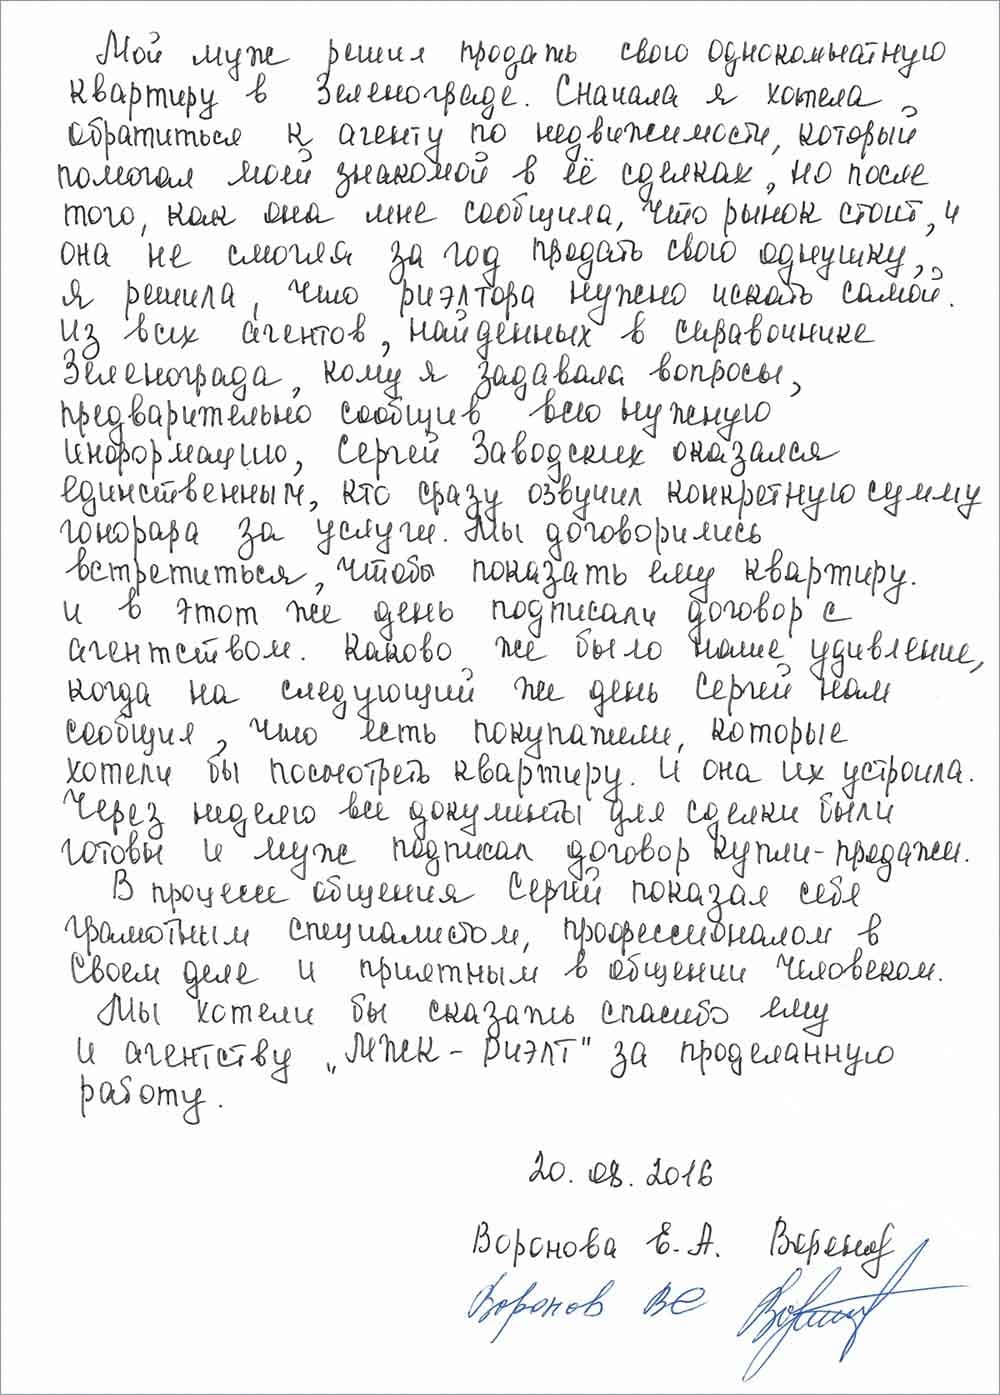 Мой муж решил продать свою однокомнатную
квартиру в Зеленограде. Сначала я хотела
обратиться к агенту по недвижимости, который
помогал моей знакомой в её сделках, но после
того, как она мне сообщила, что рынок стоит, и
она не смогла за год продать свою однушку,
я решила, что риэлтора нужно искать самой.
Из всех агентов, найденных в справочнике
Зеленограда, кому я задавала вопросы,
предварительно сообщив всю нужную
информацию, Сергей Заводских оказался
единственным, кто сразу озвучил конкретную сумму
гонорара за услуги. Мы договорились
встретиться, чтобы показать ему квартиру.
И в этот же день подписали договор с
агентством. Каково же было наше удивление,
когда на следующий же день Сергей нам
сообщил, что есть покупатели, которые
хотели бы посмотреть квартиру. И она их устроила.
Через неделю все документы для сделки были
готовы и муж подписал договор купли-продажи.
В процессе общения Сергей показал себя
грамотным специалистом, профессионалом в
своем деле и приятным в общении человеком.
Мы хотели бы сказать спасибо ему
и агентству „МЖК-Риэлт" за проделанную
работу.
20.08.2016
Воронова Е.А.
Воронов ВС